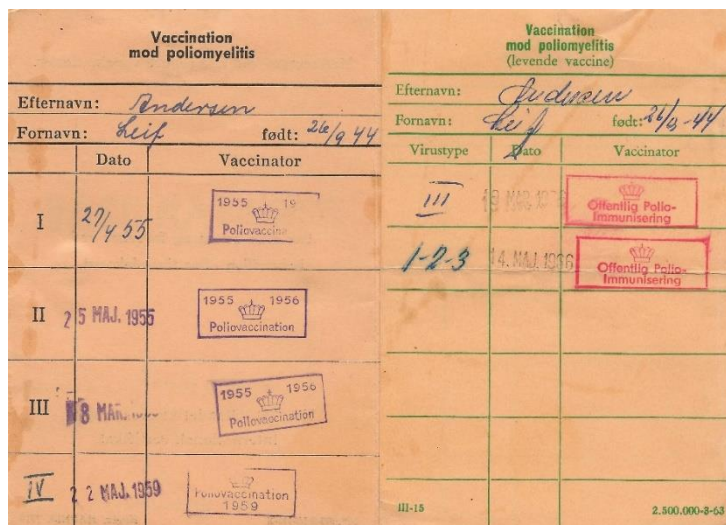 Vaccination
mod poliomyelitis
Efternavn: Andersen
Fornavn: Leif født: 26/9 44
Dato Vaccinator
I 27/4 55 1955 19
Poliovaccina
II 25 MAJ. 1955 1955 1956
Poliovaccination
III 8 MAR. 1955 1956
Poliovaccination
IV 22 MAJ. 1959 Poliovaccination
1959
Vaccination
mod poliomyelitis
(levende vaccine)
Efternavn: Andersen
Fornavn: Leif født: 26/9-44
Virustype Dato Vaccinator
III MAR. Offentlig Polio-
Immunisering
1-2-3 14. MAJ. 1966 Offentlig Polio-
Immunisering
III-15 2.500.000-3-63